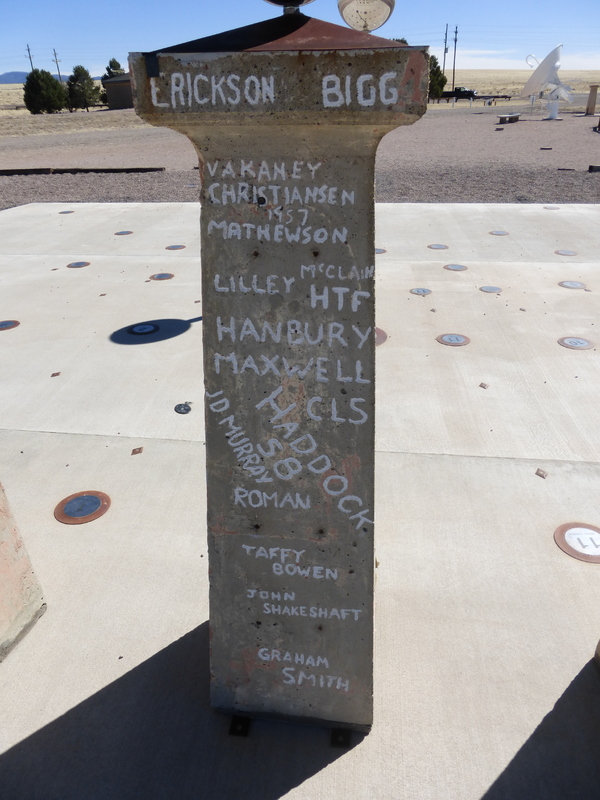 ERICKSON BIGG
VAKANEY
CHRISTIANSEN
1957
MATHEWSON
MCCLAIN
LILLEY HTF
HANBURY
MAXWELL
CLS
HADDOCK
58
JD MURRAY
ROMAN
TAFFY
BOWEN
JOHN
SHAKESHAFT
GRAHAM
SMITH
11